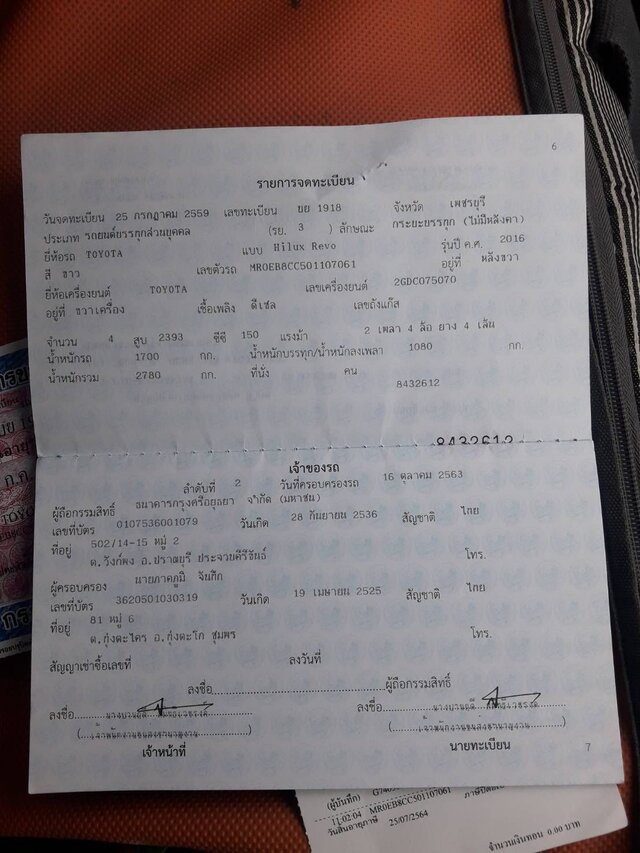 6
รายการจดทะเบียน
วันจดทะเบียน 25 กรกฎาคม 2559 เลขทะเบียน ขย 1918 จังหวัด เพชรบุรี
ประเภท รถยนต์บรรทุกส่วนบุคคล (รย. 3 ) ลักษณะ กระบะบรรทุก (ไม่มีหลังคา)
ยี่ห้อรถ TOYOTA แบบ Hilux Revo รุ่นปี ค.ศ. 2016
สี ขาว เลขตัวรถ MR0EB8CC501107061 อยู่ที่ หลังขวา
ยี่ห้อเครื่องยนต์ TOYOTA เลขเครื่องยนต์ 2GDC075070
อยู่ที่ ขวาเครื่อง เชื้อเพลิง ดีเซล เลขถังแก๊ส
จำนวน 4 สูบ 2393 ซีซี 150 แรงม้า 2 เพลา 4 ล้อ ยาง 4 เส้น
น้ำหนักรถ 1700 กก. น้ำหนักบรรทุก/น้ำหนักลงเพลา 1080 กก.
น้ำหนักรวม 2780 กก. ที่นั่ง คน
8432612
8432612
เจ้าของรถ
ลำดับที่ 2 วันที่ครอบครองรถ 16 ตุลาคม 2563
ผู้ถือกรรมสิทธิ์ ธนาคารกรุงศรีอยุธยา จำกัด (มหาชน)
เลขที่บัตร 0107536001079 วันเกิด 28 กันยายน 2536 สัญชาติ ไทย
ที่อยู่ 502/14-15 หมู่ 2
ต.วังก์พง อ.ปราณบุรี ประจวบคีรีขันธ์ โทร.
ผู้ครอบครอง นายภาคภูมิ จันทึก
เลขที่บัตร 3620501030319 วันเกิด 19 เมษายน 2525 สัญชาติ ไทย
ที่อยู่ 81 หมู่ 6
ต.ทุ่งตะไคร อ.ทุ่งตะโก ชุมพร โทร.
สัญญาเช่าซื้อเลขที่ ลงวันที่
ลงชื่อ ผู้ถือกรรมสิทธิ์
ลงชื่อ ลงชื่อ
(เจ้าพนักงานขนส่งชำนาญงาน) (เจ้าพนักงานขนส่งชำนาญงาน)
เจ้าหน้าที่ นายทะเบียน
7
(ผู้บันทึก)
11:02:04 MR0EB8CC501107061
วันสิ้นอายุภาษี 25/07/2564
จำนวนเงินทอน 0.00 บาท